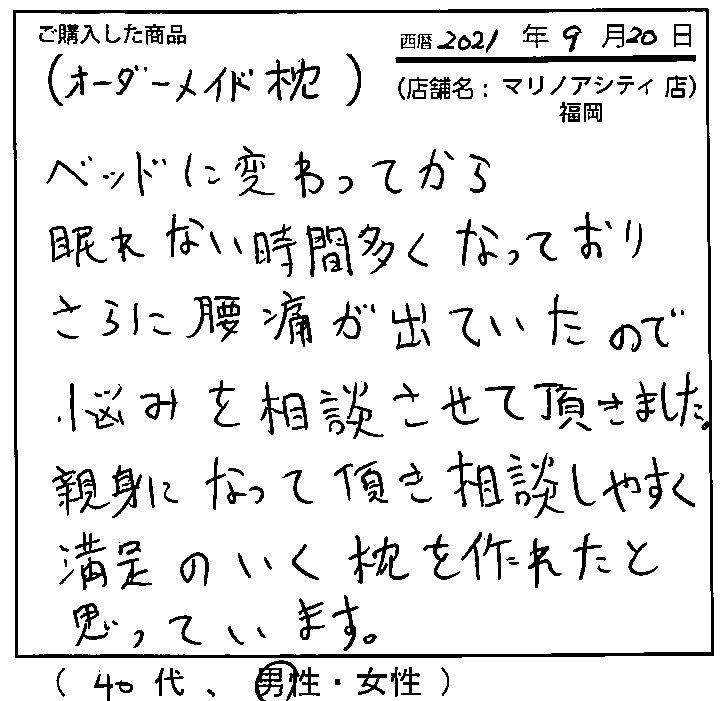 ご購入した商品
西暦 2021 年 9 月 20 日
(オーダーメイド枕)
(店舗名:マリノアシティ 店)
福岡
ベッドに変わってから
眠れない時間多くなっており
さらに腰痛が出ていたので
悩みを相談させて頂きました。
親身になって頂き相談しやすく
満足のいく枕を作れたと
思っています。
(40代、男性・女性)